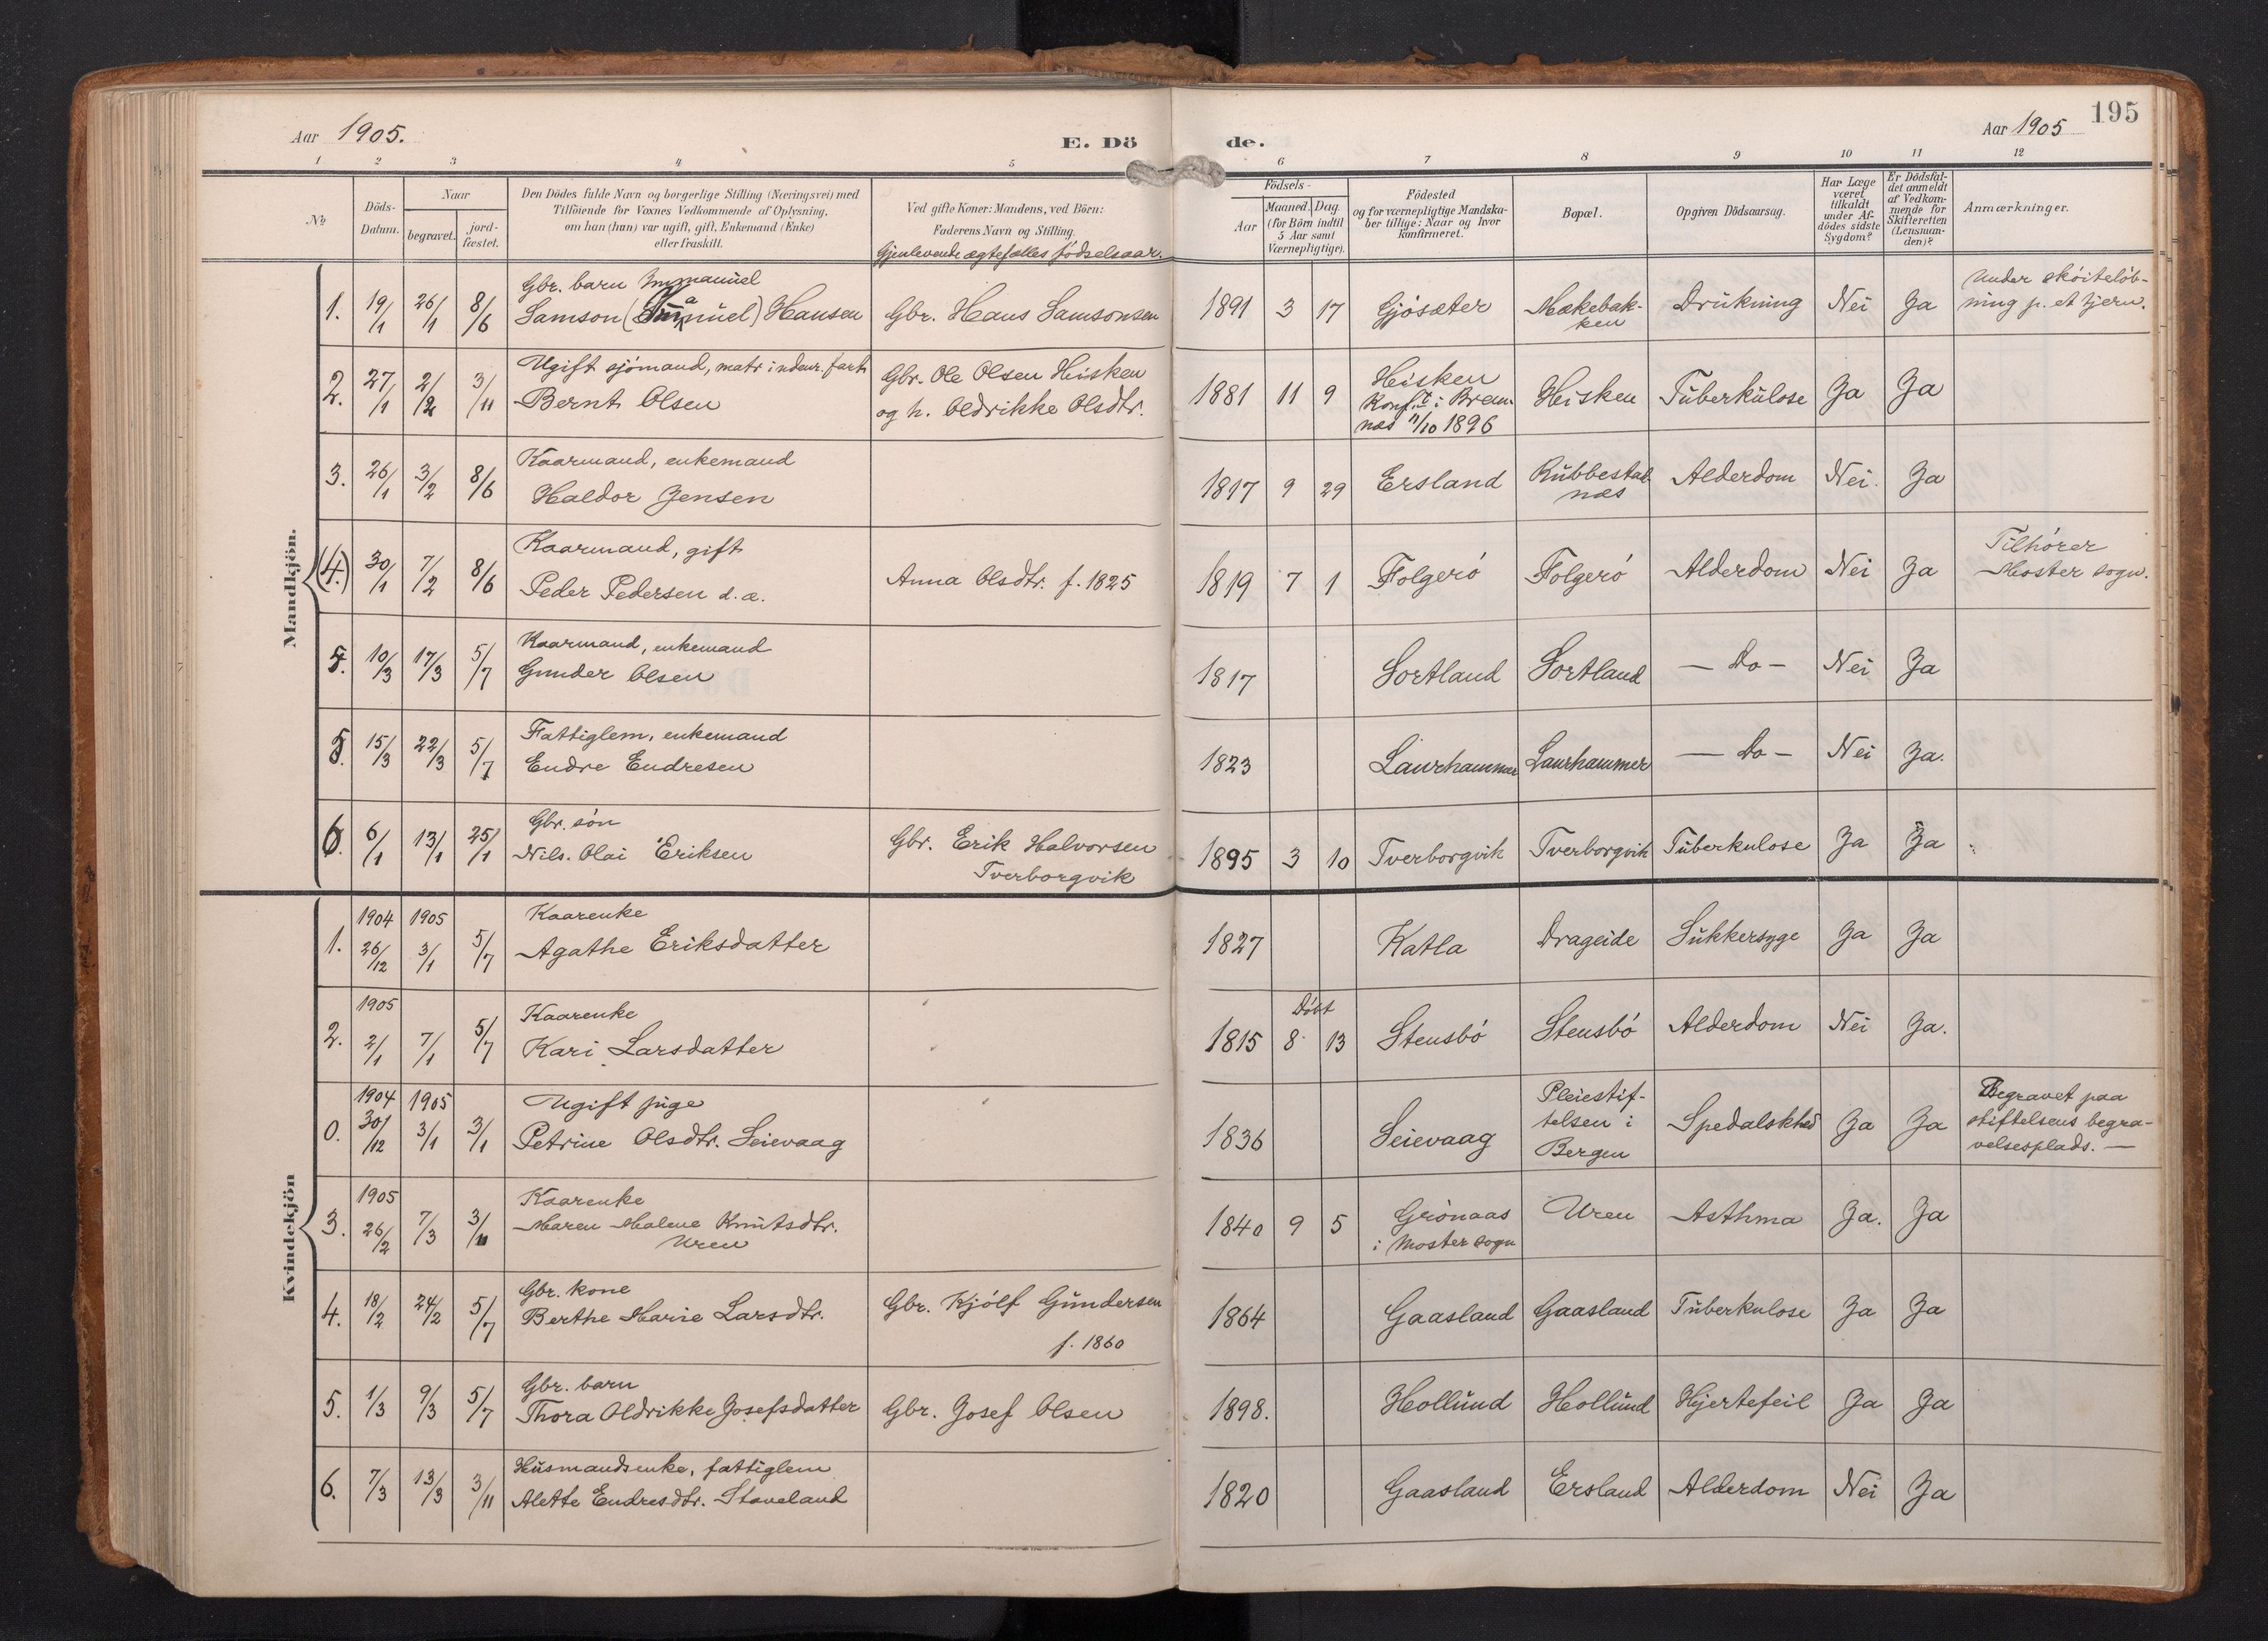 195
Aar 1905. E. Dö de. Aar 1905
1 2 3 4 5 6 7 8 9 10 11 12
No
Döds-Datum.
Naar
begravet.
jord-fæstet.
Den Dödes fulde Navn og borgerlige Stilling (Næringsvei) med
Tilföiende for Voxnes Vedkommende af Oplysning,
om han (hun) var ugift, gift, Enkemand (Enke)
eller fraskilt.
Ved gifte Koner: Mandens, ved Börn:
Faderens Navn og Stilling.
Gjenlevende ægtefælles fødselsaar.
Födsels-
Aar
Maaned. Dag.
(for Börn indtil
5 Aar samt
Værnepligtige).
Födested
og for værnepligtige Mandska-
ber tillige: Naar og hvor
konfirmeret.
Bopæl.
Opgiven Dödsaarsag.
Har Læge
været
tilkaldt
under Af-
dödes sidste
Sygdom?
Er Dödsfal-
det anmeldt
af Vedkom-
mende for
Skifteretten
(Lensman-
den)?
Anmærkninger.
Mandkjön.
1. 19/1 26/1 8/6
Gbr. barn Immanuel
Samson ( ) Hansen
Gbr. Hans Samsonsen
1891 3 17 Gjøsæter
Mækebak-
ken
Drukning Nei Ja
Under skøiteløb-
ning p. et tjern.
2. 27/1 2/2 3/11
Ugift sjømand, matr. i udenr. fart
Bernt Olsen
Gbr. Ole Olsen Hisken
og h. Oldrikke Olsdtr.
1881 11 9
Heisken
Konf. i Brem-
næs 11/10 1896
Heisken Tuberkulose Ja Ja
3. 26/1 3/2 8/6
Kaarmand, enkemand
Haldor Jensen
1817 9 29 Ersland
Rubbestad-
næs
Alderdom Nei. Ja
(4.) 30/1 7/2 8/6
Kaarmand, gift
Peder Pedersen d.æ.
Anna Olsdtr. f. 1825
1819 7 1 Folgerø Folgerø Alderdom Nei Ja
Tilhører
Moster sogn.
5. 10/3 17/3 5/7
Kaarmand, enkemand
Gunder Olsen
1817 Sortland Sortland — Do — Nei Ja
5. 15/3 22/3 5/7
Fattiglem, enkemand
Endre Endresen
1823 Laurhammer Laurhammer — Do — Nei Ja.
6. 6/1 13/1 25/1
Gbr. søn
Nils Olai Eriksen
Gbr. Erik Halvorsen
Tverborgvik
1895 3 10 Tverborgvik Tverborgvik Tuberkulose Ja Ja
Kvindekjön
1. 1904 26/12 1905 3/1 5/7
Kaarenke
Agathe Eriksdatter
1827 Katla Drageide Sukkersyge Ja Ja
2. 1905 2/1 7/1 5/7
Kaarenke
Kari Larsdatter
Døbt
1815 8 13 Stensbø Stensbø Alderdom Nei Ja.
0. 1904 30/12 1905 3/1 3/1
Ugift pige
Petrine Olsdtr. Seievaag
1836 Seievaag
Pleiestif-
telsen i
Bergen
Spedalskhed Ja Ja
Begravet paa
stiftelsens begra-
velsesplads. —
3. 1905 26/2 7/3 3/11
Kaarenke
Maren Malene Knutsdtr.
Uren
1840 9 5
Grønaas
i Moster sogn
Uren Asthma Ja. Ja
4. 18/2 24/2 5/7
Gbr. kone
Berthe Marie Larsdtr.
Gbr. Kjølf Gundersen
f. 1860
1864 Gaasland Gaasland Tuberkulose Ja Ja
5. 1/3 9/3 5/7
Gbr. barn
Thora Oldrikke Josefsdatter
Gbr. Josef Olsen
1898. Hollund Hollund Hjertefeil Ja Ja
6. 7/3 13/3 3/11
Husmandsenke, fattiglem
Alette Endresdtr. Staveland
1820 Gaasland Ersland Alderdom Nei Ja